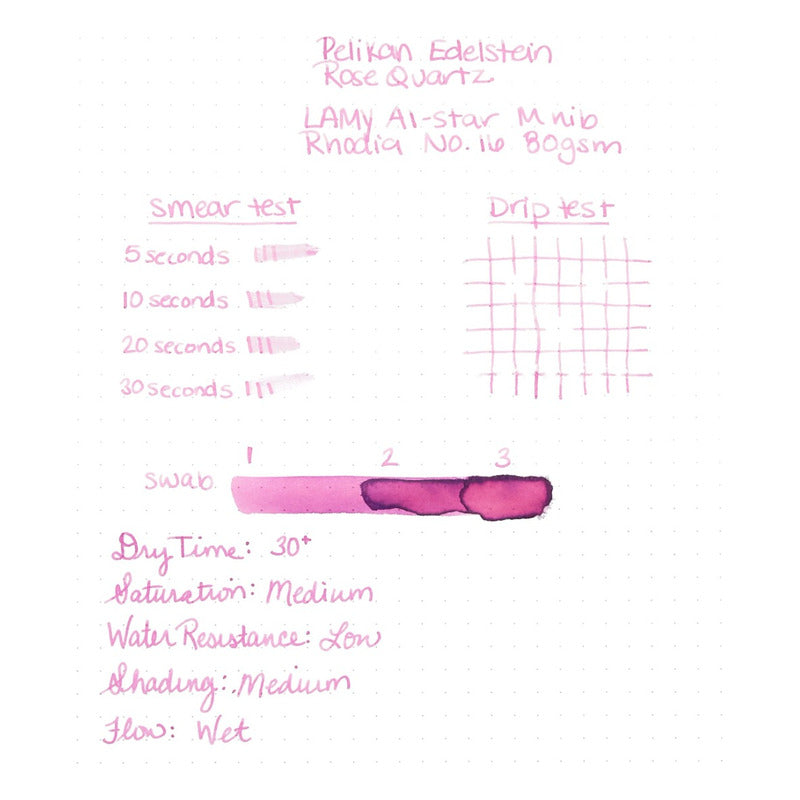 Pelikan Edelstein
Rose Quartz
LAMY Al-star M nib
Rhodia No. 16 80gsm
Smear test
Drip test
5 seconds
10 seconds
20 seconds
30 seconds
1 2 3
Swab
Dry Time: 30+
Saturation: Medium
Water Resistance: Low
Shading: Medium
Flow: Wet